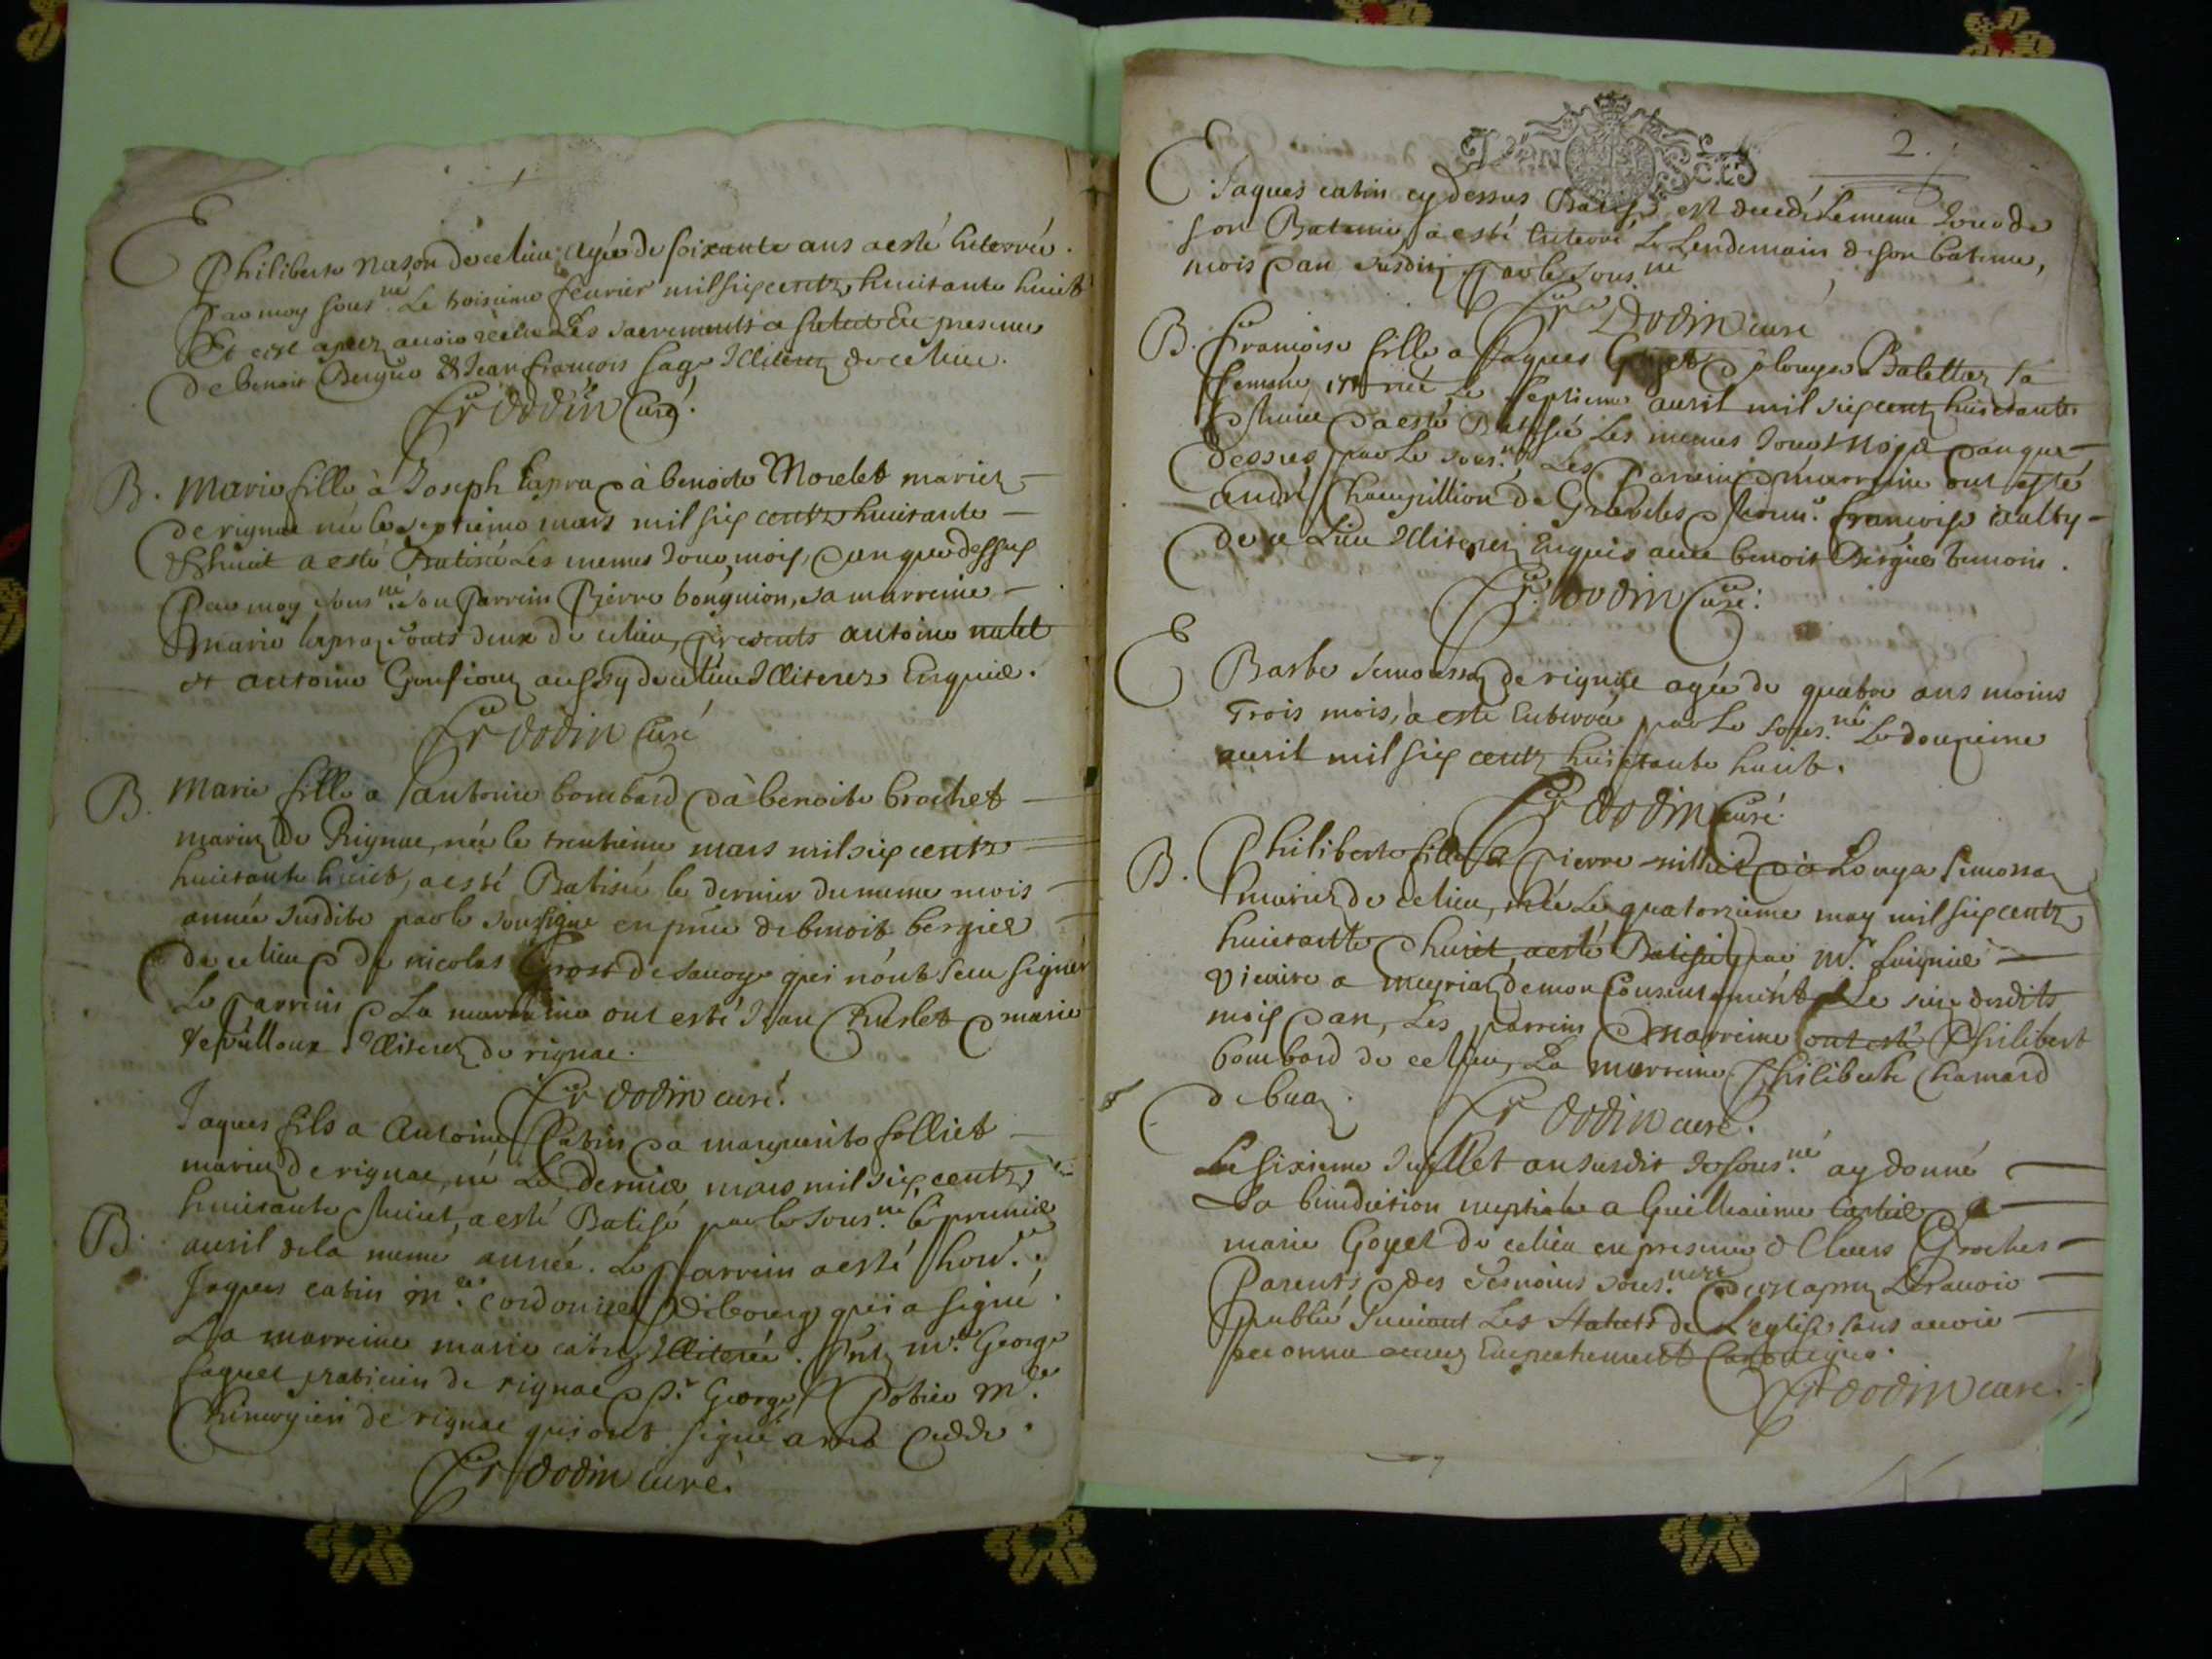 E
Philiberte nason de ce lieu agée de soixante ans a esté enterrée
par moy sous.né Le troisieme feurier mil six centz huictante huict
Et ce apres auoir receu Les sacrements a  En presence
de benoit Bergier & Jean francois sage Illiterez de ce lieu.
fr dodin Curé.
B. Marie fille à Joseph Lapra & à benoite Morelet mariez
de rignac née le septieme mars mil six centz huictante
& huict a esté Batisée Les memes Jour, mois, & an que dessus
Par moy sous.né son Parrein Pierre bonguion, sa marreine
marie lapraz touts deux de ce lieu, presents antoine nalet
et antoine Goussouz aussy de ce lieu Illiterez Enquis.
fr dodin Curé
B. Marie fille a antoine bombard & à benoite brochet
mariez de Rignac, née le trentieme mars mil six centz
huictante huict, a esté Batisée le dernier du meme mois
année susdite par le soussigne en pnce de benoit bergier
de ce lieu & de nicolas Gros de sauoye qui n'ont sceu signer
Le parrein & La marreine ont esté Jean Churlet & marie
 Illiterez de rignac.
fr dodin curé.
Jaques fils a Antoine Catin & a marguerite folliet
mariez de rignac, né Le dernier mars mil six centz
huictante & huict, a esté Batisé par le sous.né le premier
B. auril de la meme année. Le Parrein a esté hon.
Jaques catin m.e cordonier de bourg qui a signé.
La marreine marie catin Illiterée. Pntz m.e George
saguet praticien de rignac & s.r George Potier M.e
Chirurgien de rignac qui ont signé a
fr dodin curé.
2.
E Jaques catin cy dessus Batisé est decedé le meme Jour de
son Bateme, a esté Enterré Le Lendemain de son bateme,
mois & an susdit par le sous.né
fr Dodin curé
B. francoise fille a Jaques Goyet & à louyse Balettaz sa
femme, née Le septieme auril mil six centz huictante
& huict & a esté Batisée Les memes Jour Mois & an que
dessus par Le sous.né Les Parrein & marreine ont esté
andré Champillion de Greueles & hon. francoise 
de ce Lieu Illiterez Enquis auec benoit Bergier temoin.
fr. dodin Curé.
E Barbe Simonssaz de rignac agée de quatre ans moins
Trois mois, a esté Enterrée par Le sous.né Le douzieme
auril mil six centz huictante huict.
fr dodin Curé.
B. Philiberte fille a Pierre  & à Louyse Simossaz
mariez de ce lieu, née Le quatorzieme may mil six centz
huictante & huict, a esté Batisée par M.r 
vicaire a meyriaz de mon Consentement Le  desdits
mois & an, Les parrein & marreine ont esté Philibert
bombard de ce lieu, La marreine Philiberte Chanard
de buaz.
fr dodin curé.
Le sixieme Juillet an susdit Je sous.né ay donné
La benediction nuptiale a Guilliaume  &
marie Goyet de ce lieu en presence de Leurs Proches
Parents & des Tesmoins sous.nez & ce apres Les auoir
publié Suiuant Les statuts de L'eglise sans auoir
 aucun Empechement Canonique.
fr dodin curé.